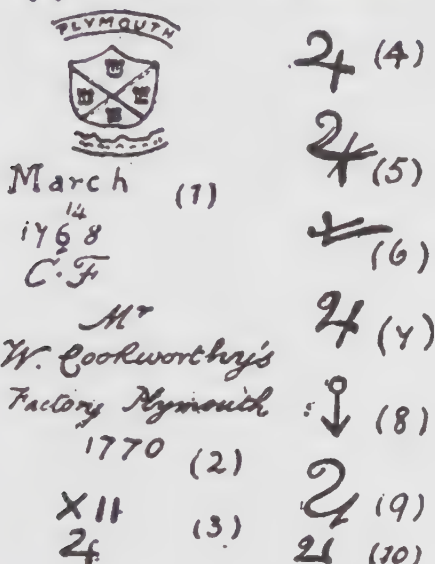 PLYMOUTH
March
14
1768
C.F
(1)
Mr
W. Cookworthy's
Factory Plymouth
1770
(2)
XII
♃
(3)
♃ (4)
♃ (5)
(6)
♃ (7)
(8)
♃ (9)
♃ (10)